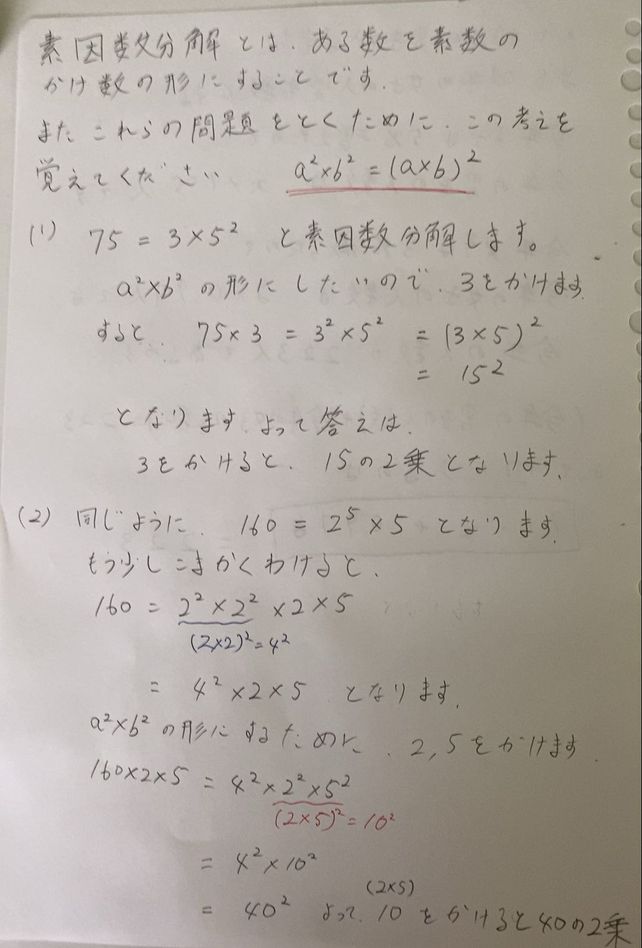 素因数分解とは、ある数を素数の
かけ数の形にすることです.
また これらの問題をとくために、この考えを
覚えてください a²×b² = (a×b)²
(1) 75 = 3×5² と素因数分解します。
a²×b² の形にしたいので、3をかけます
すると、 75×3 = 3²×5² = (3×5)²
= 15²
となります、よって答えは、
3をかけると、15の2乗となります.
(2) 同じように、160 = 2⁵×5 となります.
もう少しこまかくわけると、
160 = 2²×2²×2×5
(2×2)²=4²
= 4²×2×5 となります.
a²×b² の形にするために、2,5をかけます.
160×2×5 = 4²×2²×5²
(2×5)²=10²
= 4²×10²
(2×5)
= 40² よって、10をかけると40の2乗